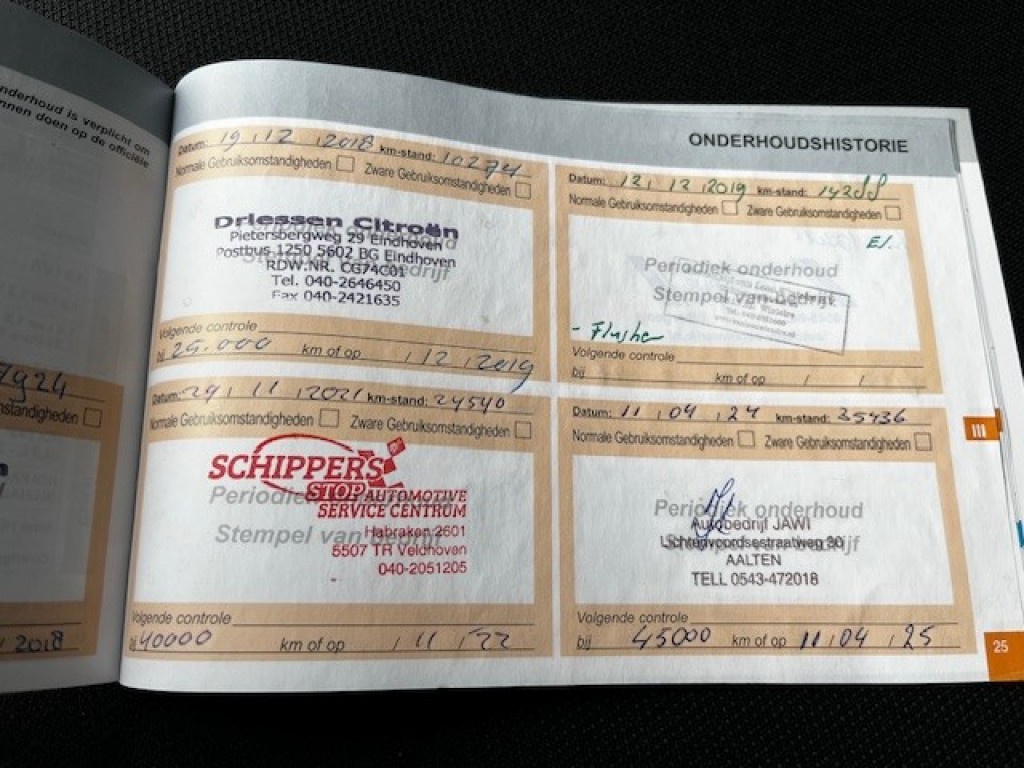 nderhoud is verplicht om
nnen doen op de officiële
standigheden
2018
ONDERHOUDSHISTORIE
Datum: 19 / 12 / 2018 km-stand: 10274
Normale Gebruiksomstandigheden Zware Gebruiksomstandigheden
Driessen Citroën
Pietersbergweg 29 Eindhoven
Postbus 1250 5602 BG Eindhoven
RDW.NR. CG74C01
Tel. 040-2646450
Fax 040-2421635
Volgende controle
bij 25.000 km of op / 12 / 2019
Datum: 12 / 12 / 2019 km-stand: 14288
Normale Gebruiksomstandigheden Zware Gebruiksomstandigheden
Periodiek onderhoud
Stempel van bedrijf
Volgende controle
bij km of op / /
Datum: 29 / 11 / 2021 km-stand: 24540
Normale Gebruiksomstandigheden Zware Gebruiksomstandigheden
SCHIPPERS
STOP AUTOMOTIVE
SERVICE CENTRUM
Periodiek
Stempel van bedrijf
Habraken 2601
5507 TR Veldhoven
040-2051205
Volgende controle
bij 40000 km of op / 11 / 22
Datum: 11 / 04 / 24 km-stand: 35436
Normale Gebruiksomstandigheden Zware Gebruiksomstandigheden
Periodiek onderhoud
Autobedrijf JAWI
Lichtenvoordsestraatweg 30
AALTEN
TELL 0543-472018
Volgende controle
bij 45000 km of op 11 / 04 / 25
III
25